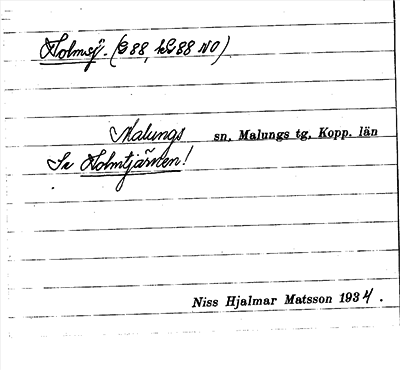 Holmsj. (G 88, kG 88 NO)
Malungs sn, Malungs tg, Kopp. län
Se Holmtjärnen!
Niss Hjalmar Matsson 1934.